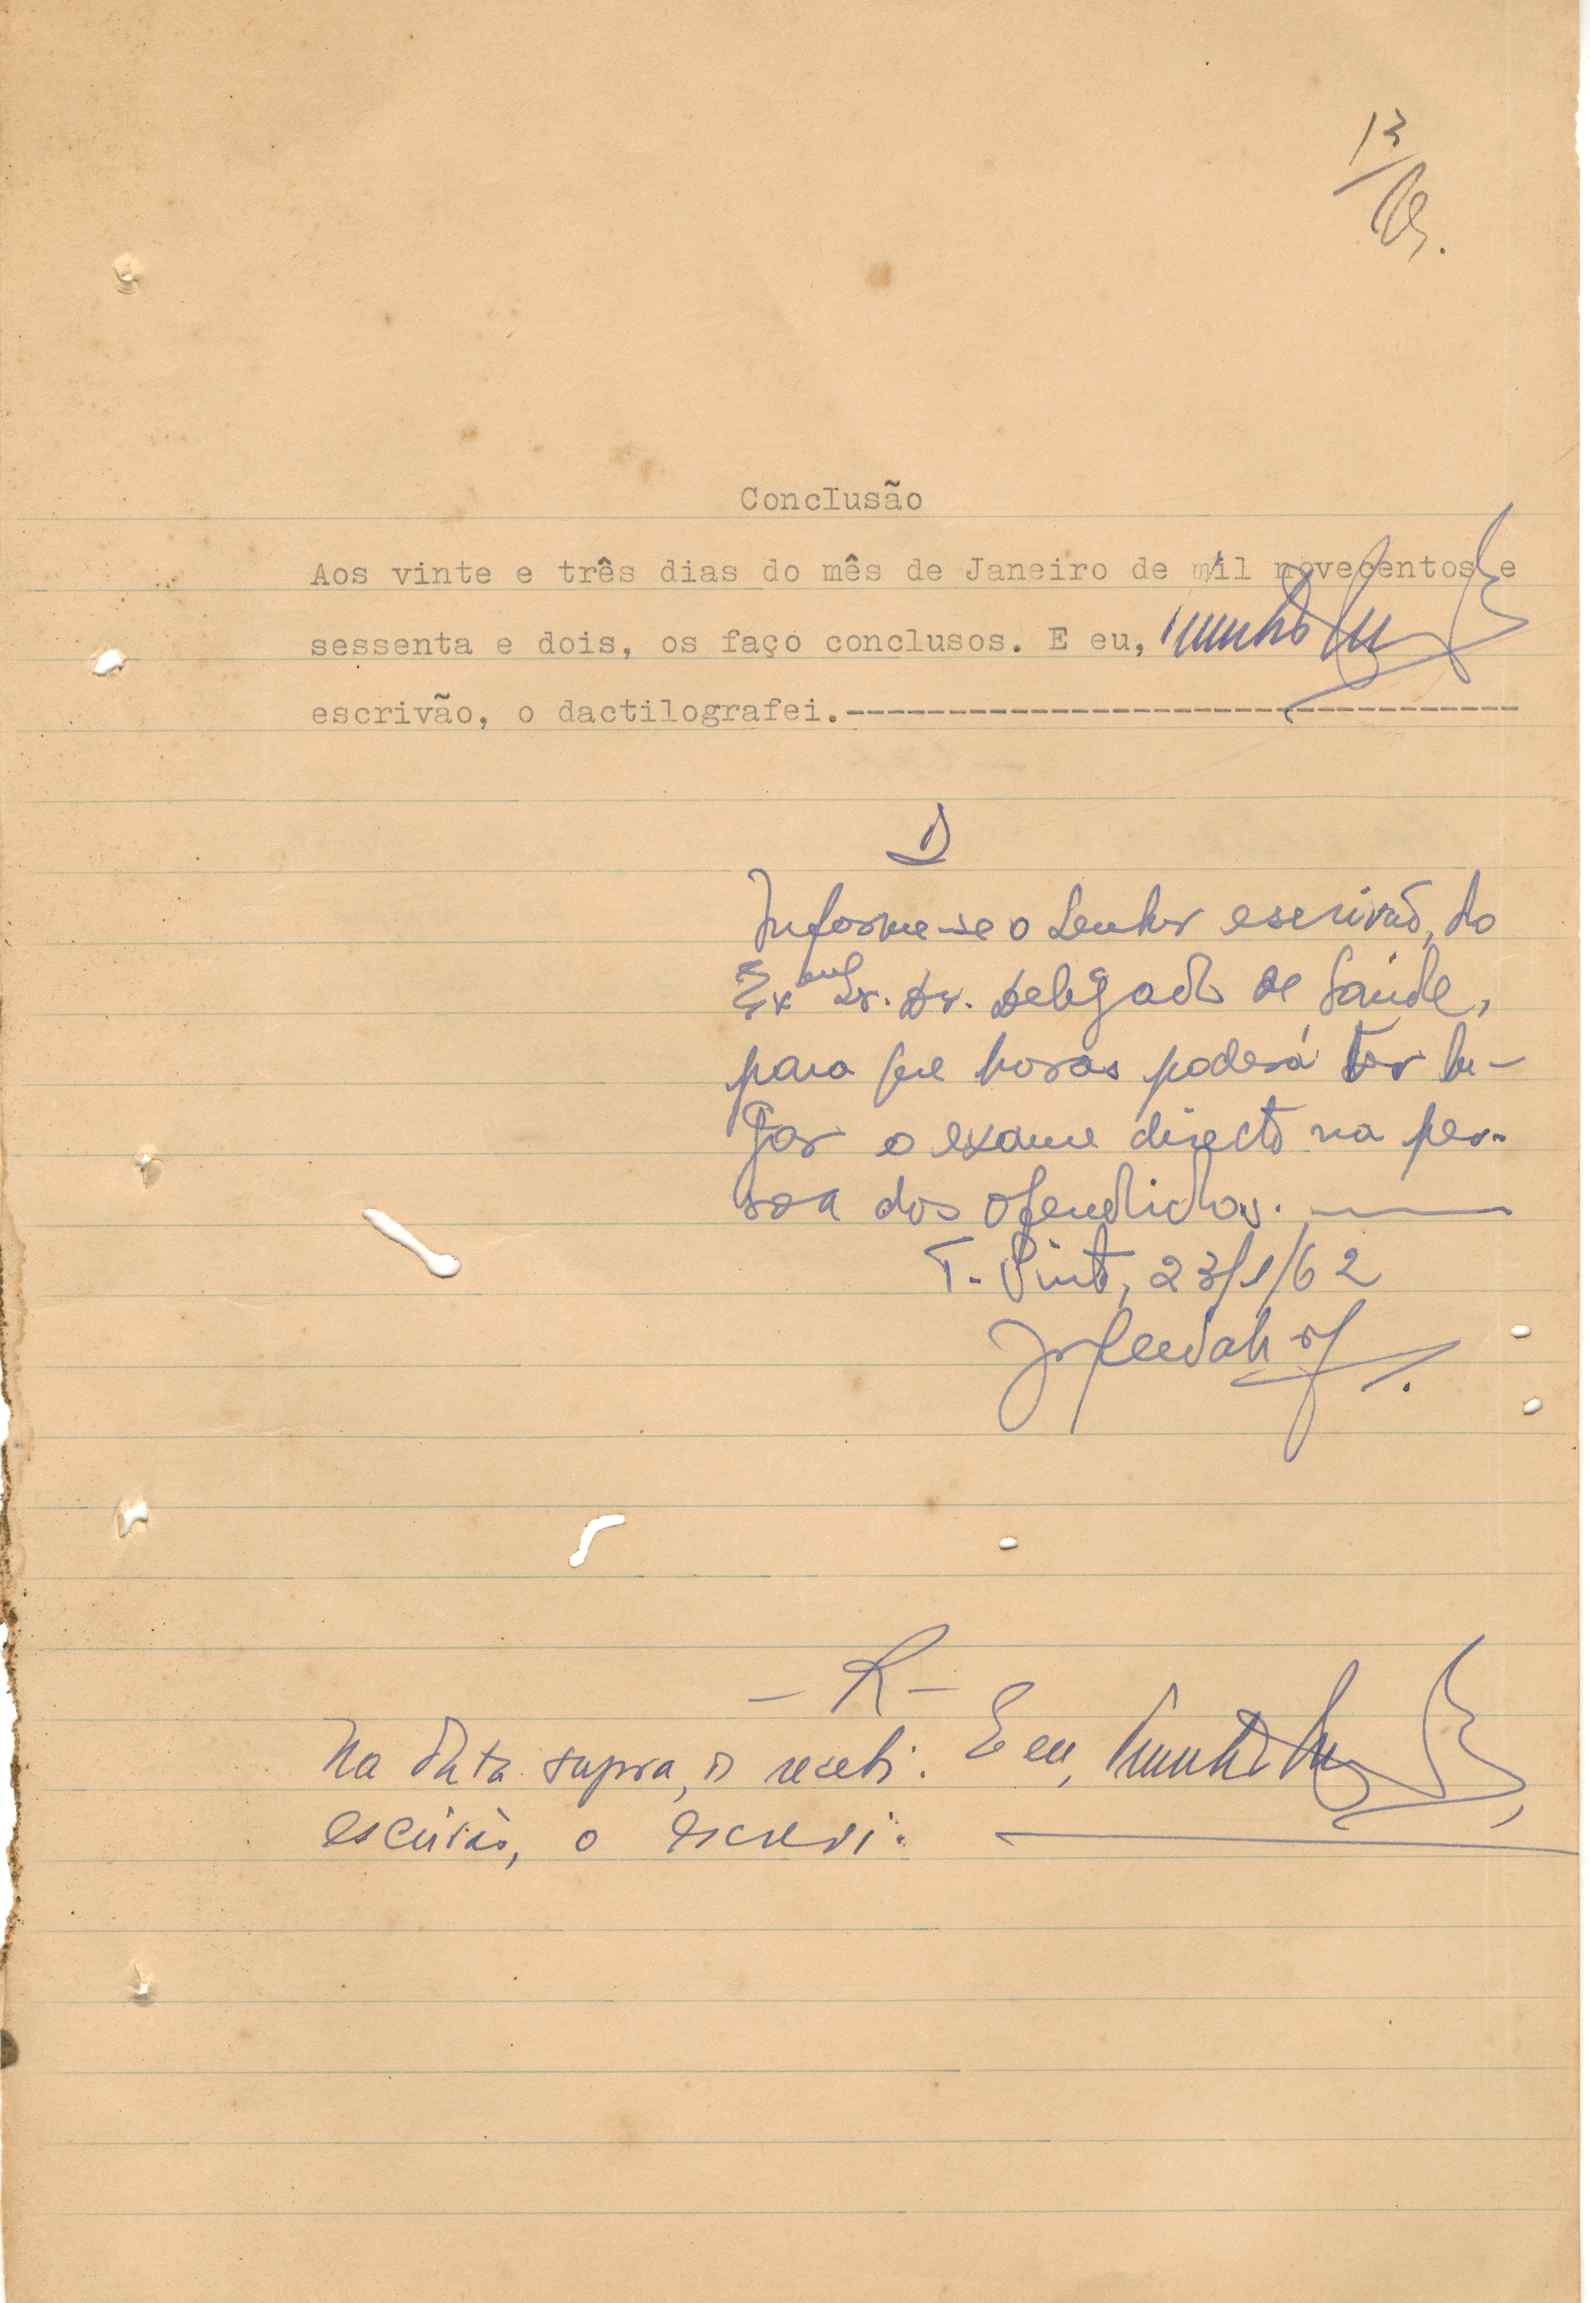 13
Conclusão
Aos vinte e três dias do mês de Janeiro de mil novecentos e
sessenta e dois, os faço conclusos. E eu,
escrivão, o dactilografei.----------------------------------
D
Informe-se o Senhor escrivão, do
Exmo Sr. Dr. Delegado de Saúde,
para que horas poderá ter lu-
gar o exame directo na pes-
soa dos ofendidos.
T. Pinto, 23/1/62
- R -
Na data supra, os recebi. E eu,
escrivão, o escrevi.